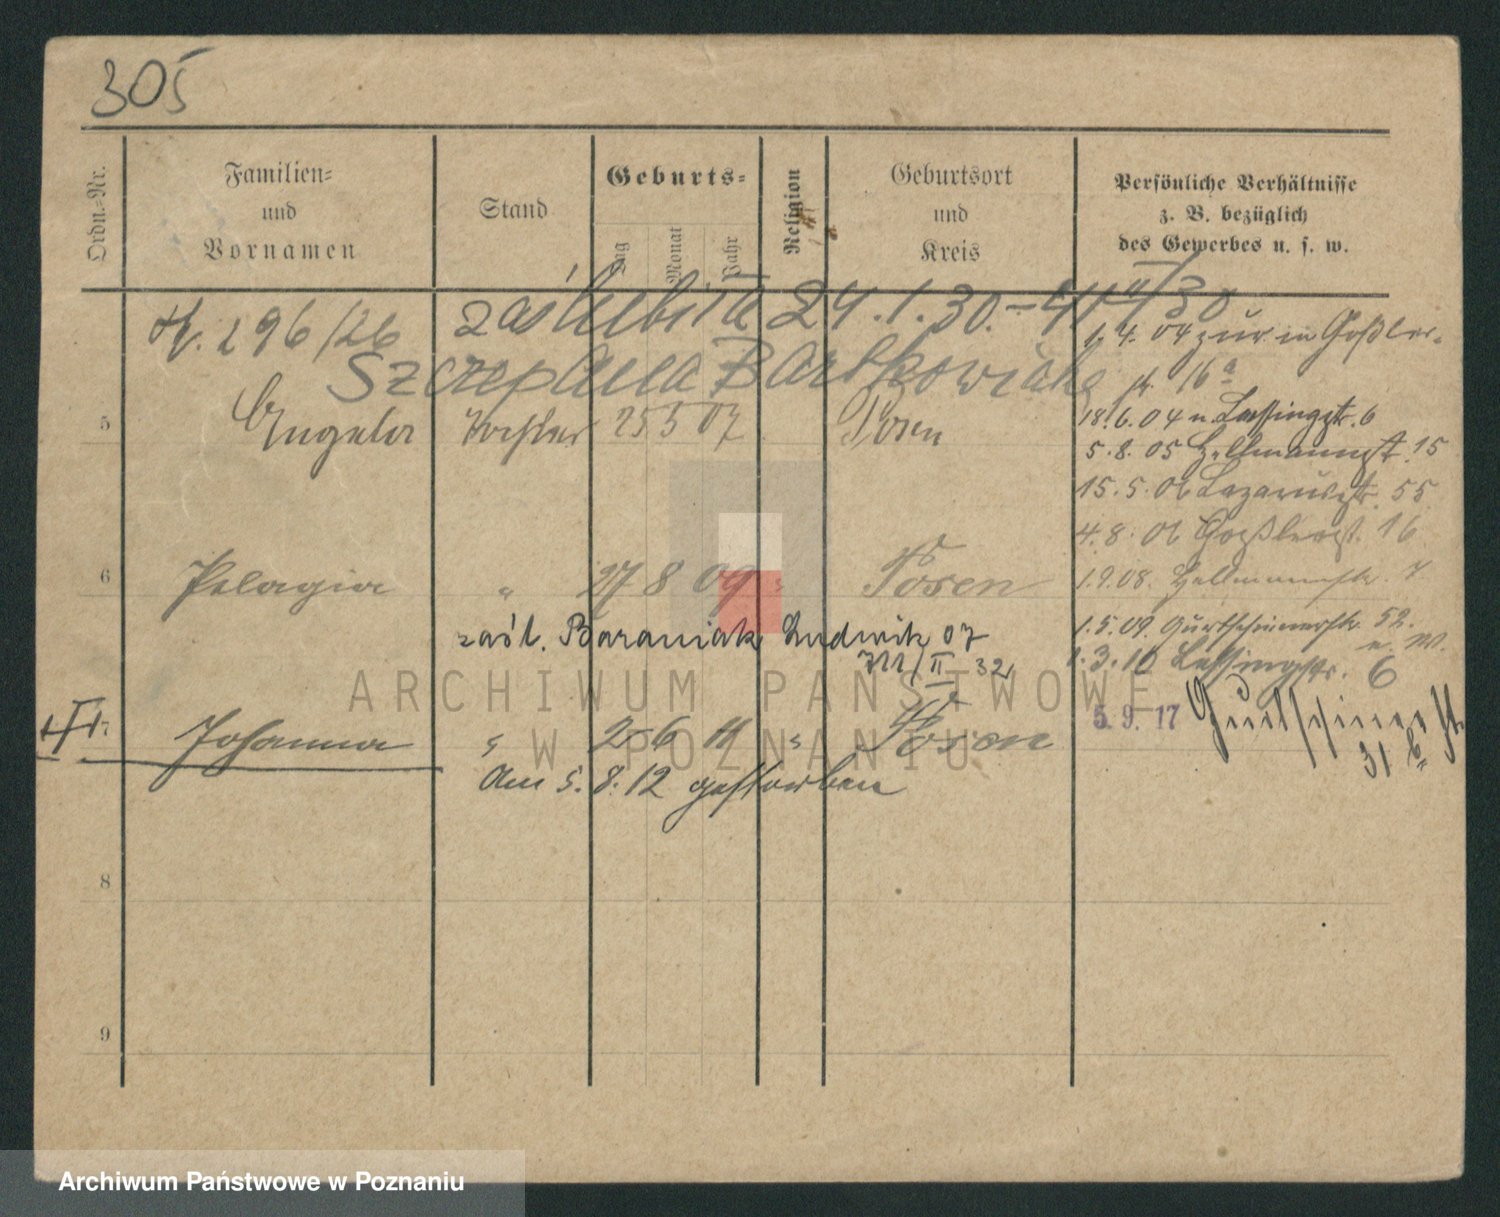 305
Ordn.-Nr.
Familien-
und
Vornamen
Stand
Geburts-
Tag
Monat
Jahr
Religion
Geburtsort
und
Kreis
Persönliche Verhältnisse
z. B. bezüglich
des Gewerbes u. s. w.
296/26 zaślubiła 24.1.30. – 41 II/30
Szczepana Bartkowiaka
1.4.04 zur. in Goßler-
str. 16a
5 Angela Tochter 25 5 07 Posen
18.6.04 n. Lessingstr. 6
5.8.05 Hellmannst. 15
15.5.06 Lazarusstr. 55
4.8.06 Goßlerst. 16
6 Pelagia " 27 8 09 " Posen
1.9.08. Hellmannstr. 7
zaśl. Baraniak Ludwik 07
711/II 32
1.5.09. Gurtschinerstr. 52.
n. W.
1.3.10 Lessingstr. 6
7 Johanna " 2 6 11 " Posen
5.9.17 Gurtschinerst.
31 b
Am 5. 8. 12 gestorben
8
9
ARCHIWUM PAŃSTWOWE
W POZNANIU
Archiwum Państwowe w Poznaniu